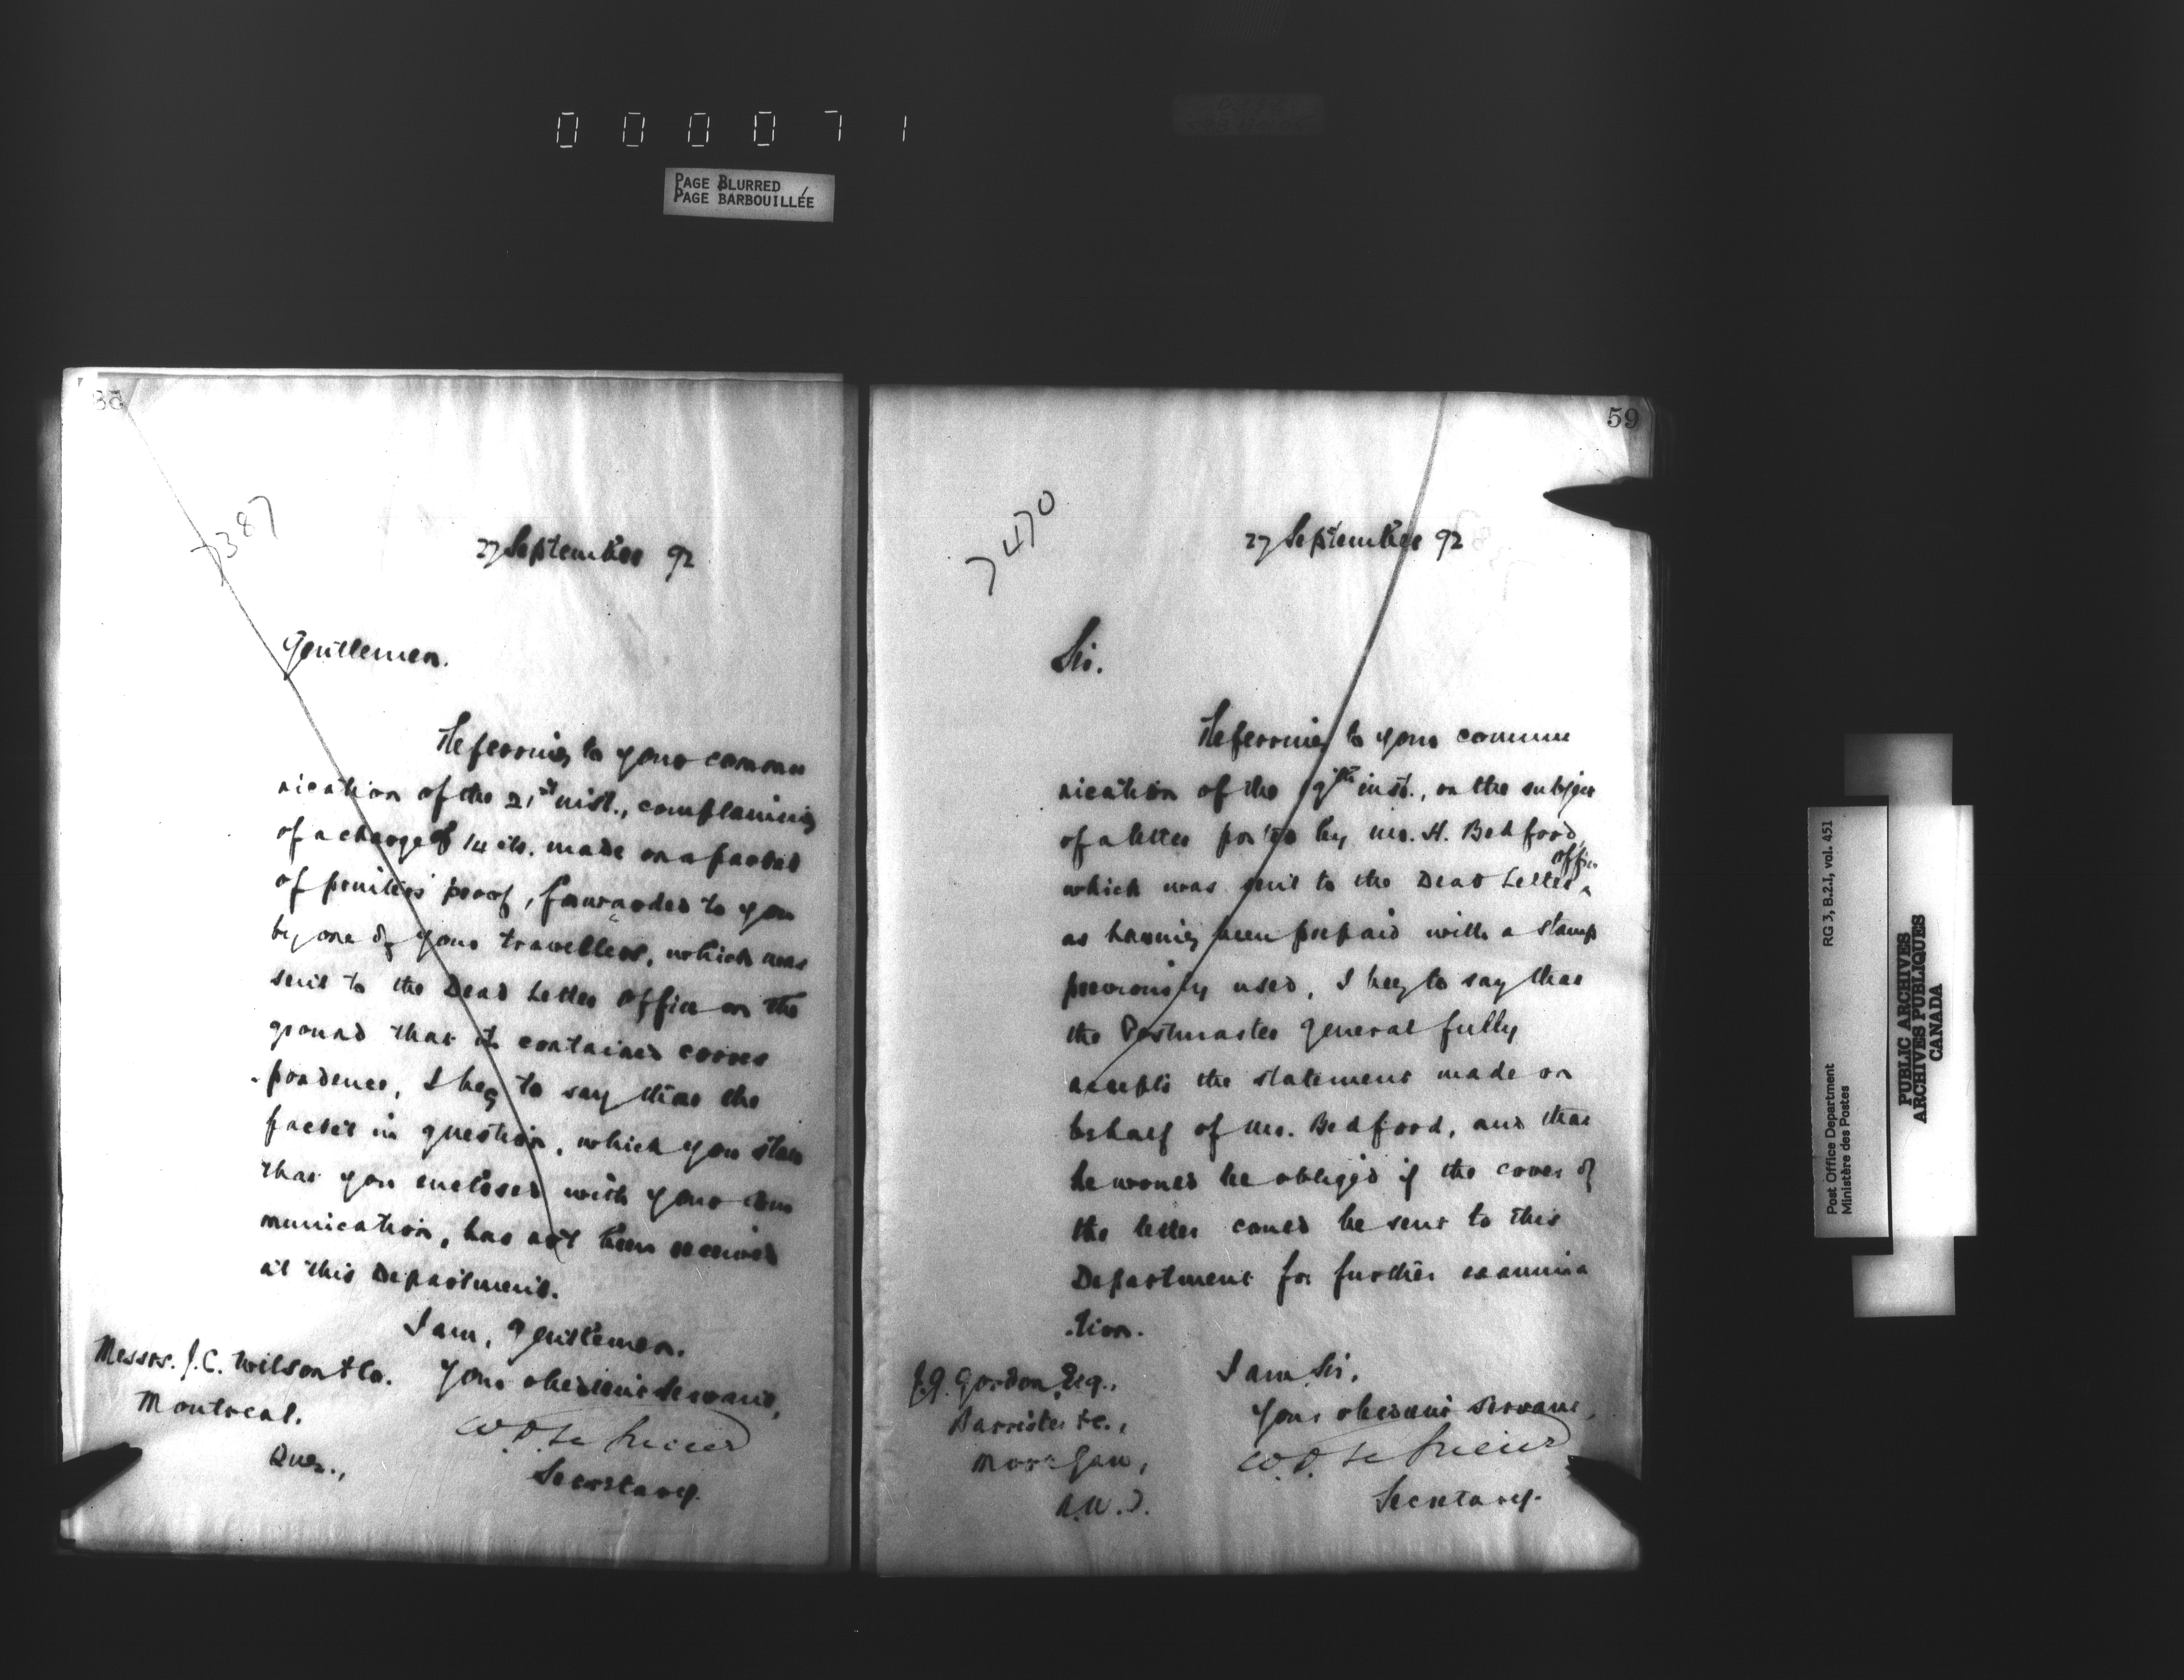 000071
PAGE BLURRED
PAGE BARBOUILLÉE
7387
27 September 92
Gentlemen.
Referring to your commu
nication of the 21st inst., complaining
of a charge of 14 cts. made on a packet
of printers' proof, forwarded to you
by one of your travellers, which was
sent to the Dead Letter Office on the
ground that it contained corres
-pondence, I beg to say that the
packet in question, which you state
that you enclosed with your com
munication, has not been received
at this Department.
I am, Gentlemen.
Your obedient Servant,
W.D. Le Sueur
Secretary.
Messrs. J.C. Wilson & Co.
Montreal.
Que.,
59
7470
27 September 92
Sir.
Referring to your commu
nication of the 19th inst., on the subject
of a letter posted by Mr. H. Bedford,
which was sent to the Dead Letter Office
as having been prepaid with a stamp
previously used, I beg to say that
the Postmaster General fully
accepts the statement made on
behalf of Mr. Bedford, and that
he would be obliged if the cover of
the letter could be sent to this
Department for further examina
-tion.
I am Sir,
Your obedient Servant,
W.D. Le Sueur
Secretary.
J.G. Gordon, Esq.,
Barrister &c.,
Moose Jaw,
N.W.T.
Post Office Department
Ministère des Postes
RG 3, B.2.I, vol. 451
PUBLIC ARCHIVES
ARCHIVES PUBLIQUES
CANADA